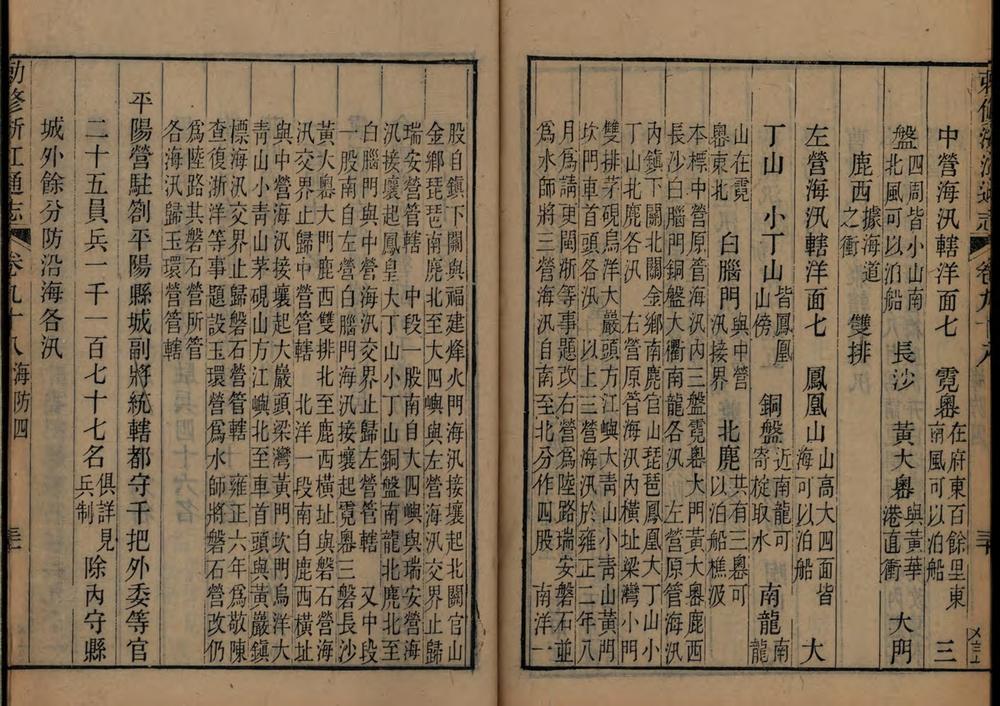 敕修浙江通志 卷九十八 三十
中營海汛轄洋面七 霓嶴 在府東百餘里東
南風可以泊船 三
盤 四周皆小山南
北風可以泊船 長沙 黃大嶴 與黃華
港直衝 大門
鹿西 據海道
之衝 雙排
左營海汛轄洋面七 鳳凰山 山高大四面皆
海可以泊船 大
丁山 小丁山 皆鳳凰
山傍 銅盤 近南龍可
寄椗取水 南龍 南
龍
山在霓
嶴東北 白腦門 與中營
汛接界 北麂 共有三嶴可
以泊船樵汲
本標中營原管海汛內三盤霓嶴大門黃大嶴鹿西
長沙白腦門銅盤大衢南龍各汛 左營原管海汛
內鎮下關北關金鄉南麂官山琵琶鳳凰大丁山小
丁山北鹿各汛 右營原管海汛內橫址梁灣小門
雙排茅硯烏洋大巖頭方江嶼大青山小青山黃門
坎門車首頭各汛 以上三營海汛於雍正二年八
月爲請更閩浙等事題改右營爲陸路瑞安磐石並
爲水師將三營海汛自南至北分作四股 南洋一
股自鎮下關與福建烽火門海汛接壤起北關官山
金鄉琵琶南麂北至大四嶼與左營海汛交界止歸
瑞安營管轄 中段一股南自大四嶼與瑞安營海
汛接壤起鳳皇大丁山小丁山銅盤南龍北麂北至
白腦門與中營海汛交界止歸左營管轄 又中段
一股南自左營白腦門海汛接壤起霓嶴三磐長沙
黃大嶴大門鹿西雙排北至鹿西橫址與磐石營海
汛交界止歸中營管轄 北洋一段南自鹿西橫址
與中營海汛接壤起大巖頭梁灣黃門坎門烏洋大
青山小青山茅硯山方江嶼北至車首頭與黃巖鎮
標海汛交界止歸磐石營管轄 雍正六年爲敬陳
查復浙洋等事題設玉環營爲水師將磐石營改仍
爲陸路其磐石營所管
各海汛歸玉環營管轄
平陽營駐劄平陽縣城副將統轄都守千把外委等官
二十五員兵一千一百七十七名 俱詳見
兵制 除內守縣
城外餘分防沿海各汛
勅修浙江通志 卷九十八 海防四 三十一